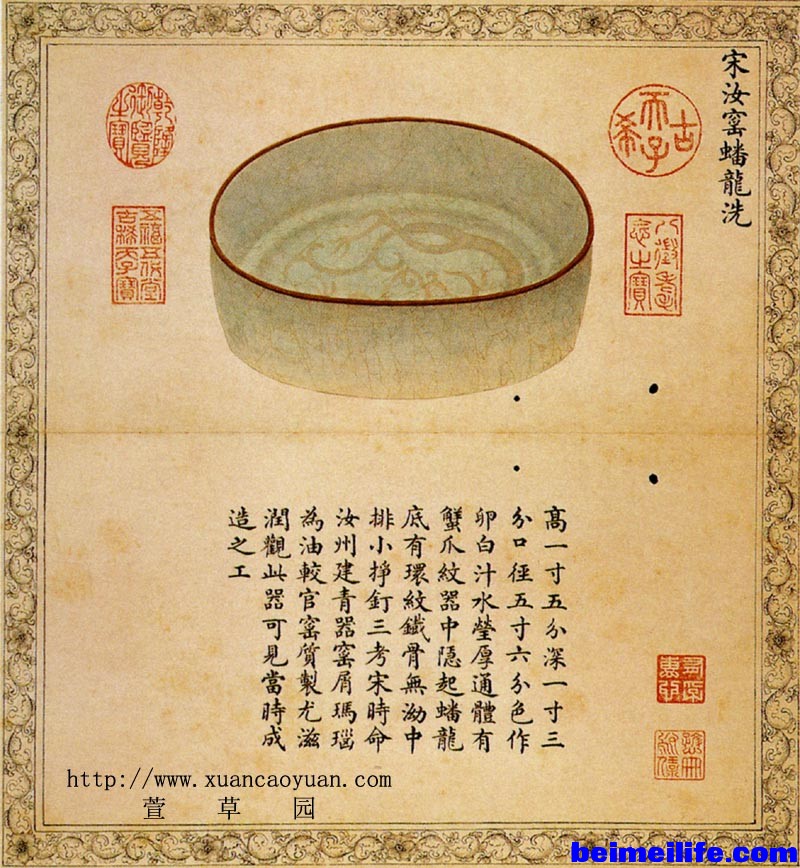 宋汝窰蟠龍洗
古希天子
八徵耄念之寶
乾隆御覽之寶
五福五代堂古稀天子寶
高一寸五分深一寸三
分口徑五寸六分色作
卵白汁水瑩厚通體有
蟹爪紋器中隱起蟠龍
底有環紋鐵骨無泑中
排小掙釘三考宋時命
汝州建青器窰屑瑪瑙
為油較官窰質製尤滋
潤觀此器可見當時成
造之工
http://www.xuancaoyuan.com
萱草园
beimeilife.com